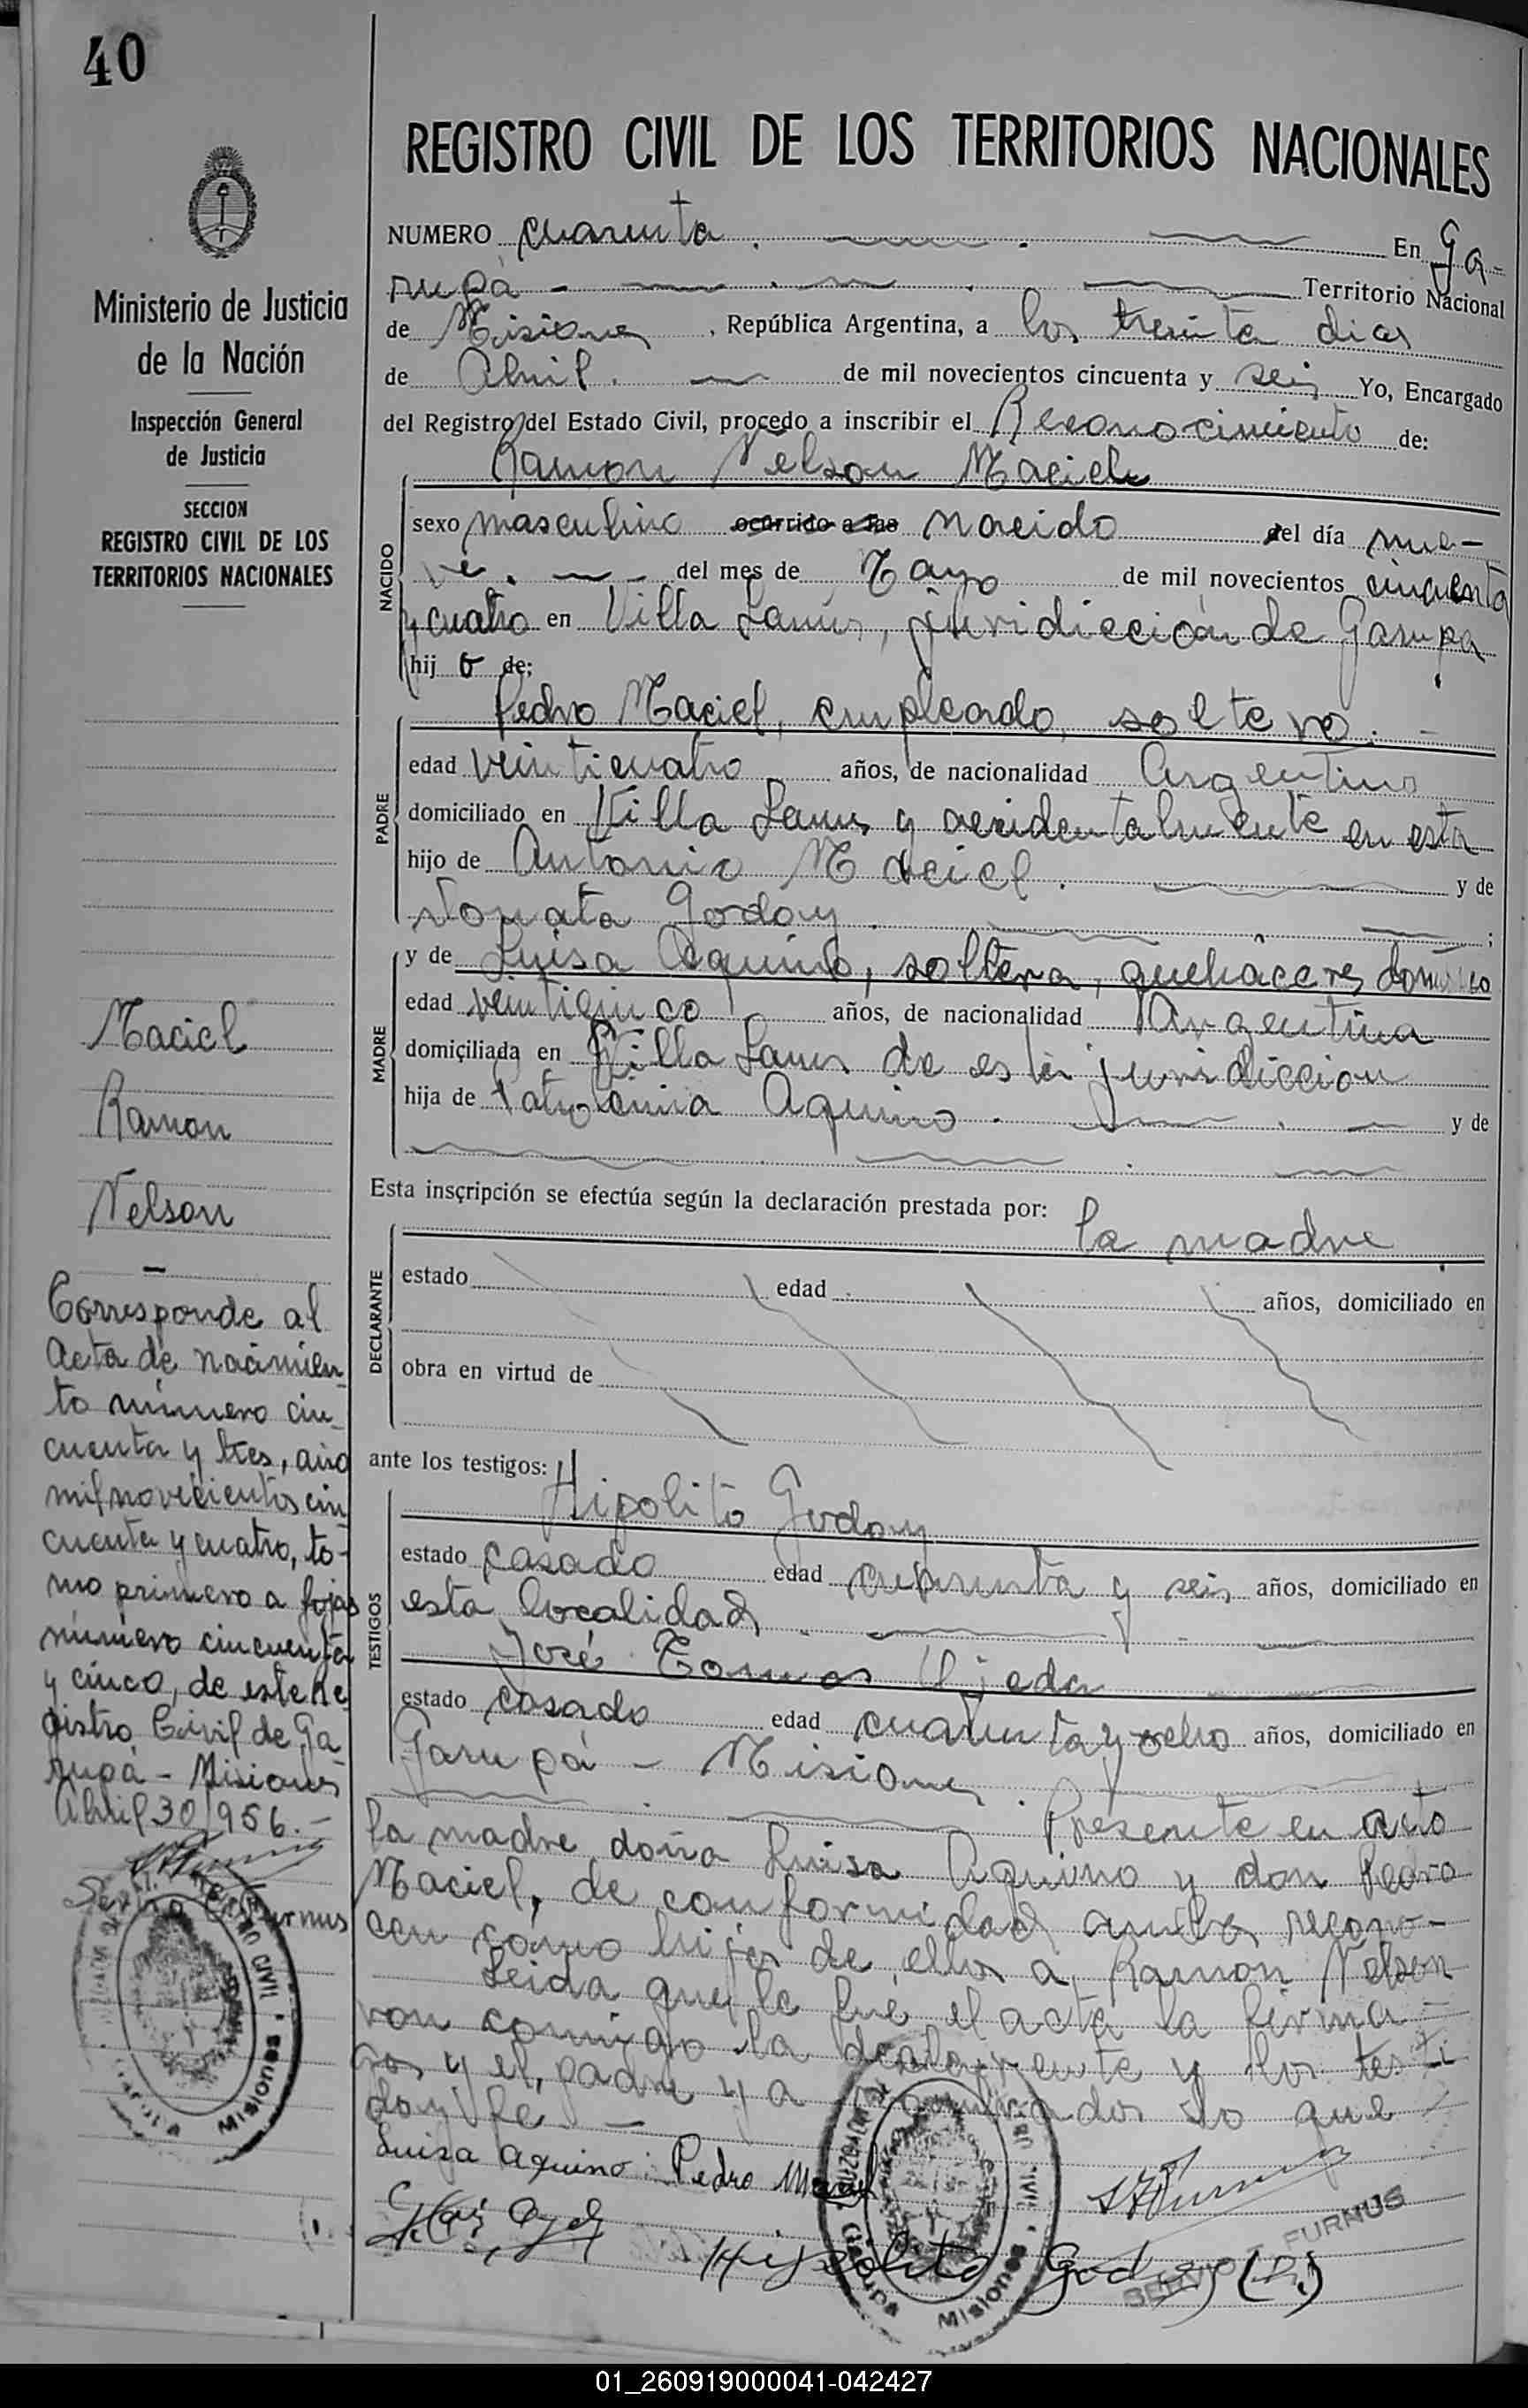 40
Ministerio de Justicia
de la Nación
Inspección General
de Justicia
SECCION
REGISTRO CIVIL DE LOS
TERRITORIOS NACIONALES
Maciel
Ramon
Nelson
Corresponde al
Acta de nacimien
to número cin
cuenta y tres, año
mil novecientos cin
cuenta y cuatro, to-
mo primero a fojas
número cincuenta
y cinco, de este Re
gistro Civil de Ga
rupá - Misiones
Abril 30/956.-
REGISTRO CIVIL DE LOS TERRITORIOS NACIONALES
NUMERO cuarenta . En Ga-
rupá - Territorio Nacional
de Misiones , República Argentina, a los treinta dias
de Abril. de mil novecientos cincuenta y seis Yo, Encargado
del Registro del Estado Civil, procedo a inscribir el Reconocimiento de:
Ramon Nelson Maciel
NACIDO
sexo masculino ocurrido a las nacido del día nue-
ve. del mes de Mayo de mil novecientos cincuenta
y cuatro en Villa Lanus, juridicción de Garupa
hij o de;
PADRE
Pedro Maciel, empleado, soltero. -
edad veinticuatro años, de nacionalidad Argentino
domiciliado en Villa Lanus y accidentalmente en esta
hijo de Antonio Maciel. y de
Donata Godoy. ;
MADRE
y de Luisa Aquino, soltera, quehaceres domestico
edad veinticinco años, de nacionalidad Argentina
domiciliada en Villa Lanus de esta jurisdiccion
hija de Aquino. y de
Esta inscripción se efectúa según la declaración prestada por: la madre
DECLARANTE
estado edad años, domiciliado en
obra en virtud de
ante los testigos: Hipolito Godoy
TESTIGOS
estado casado edad cuarenta y seis años, domiciliado en
esta localidad.
José Tomas Ojeda
estado casado edad cuarenta y ocho años, domiciliado en
Garupá - Misiones.
Presente en acto
la madre doña Luisa Aquino y don Pedro
Maciel, de conformidad ambos recono-
cen como hijo de ellos a Ramon Nelson
Leida que le fue el acta la firma-
ron conmigo la declarante y los testi
gos y el padre lo que
doy fé. -
Luisa Aquino Pedro Maciel
Hipolito Godoy
FURNUS
Misiones
01_260919000041-042427